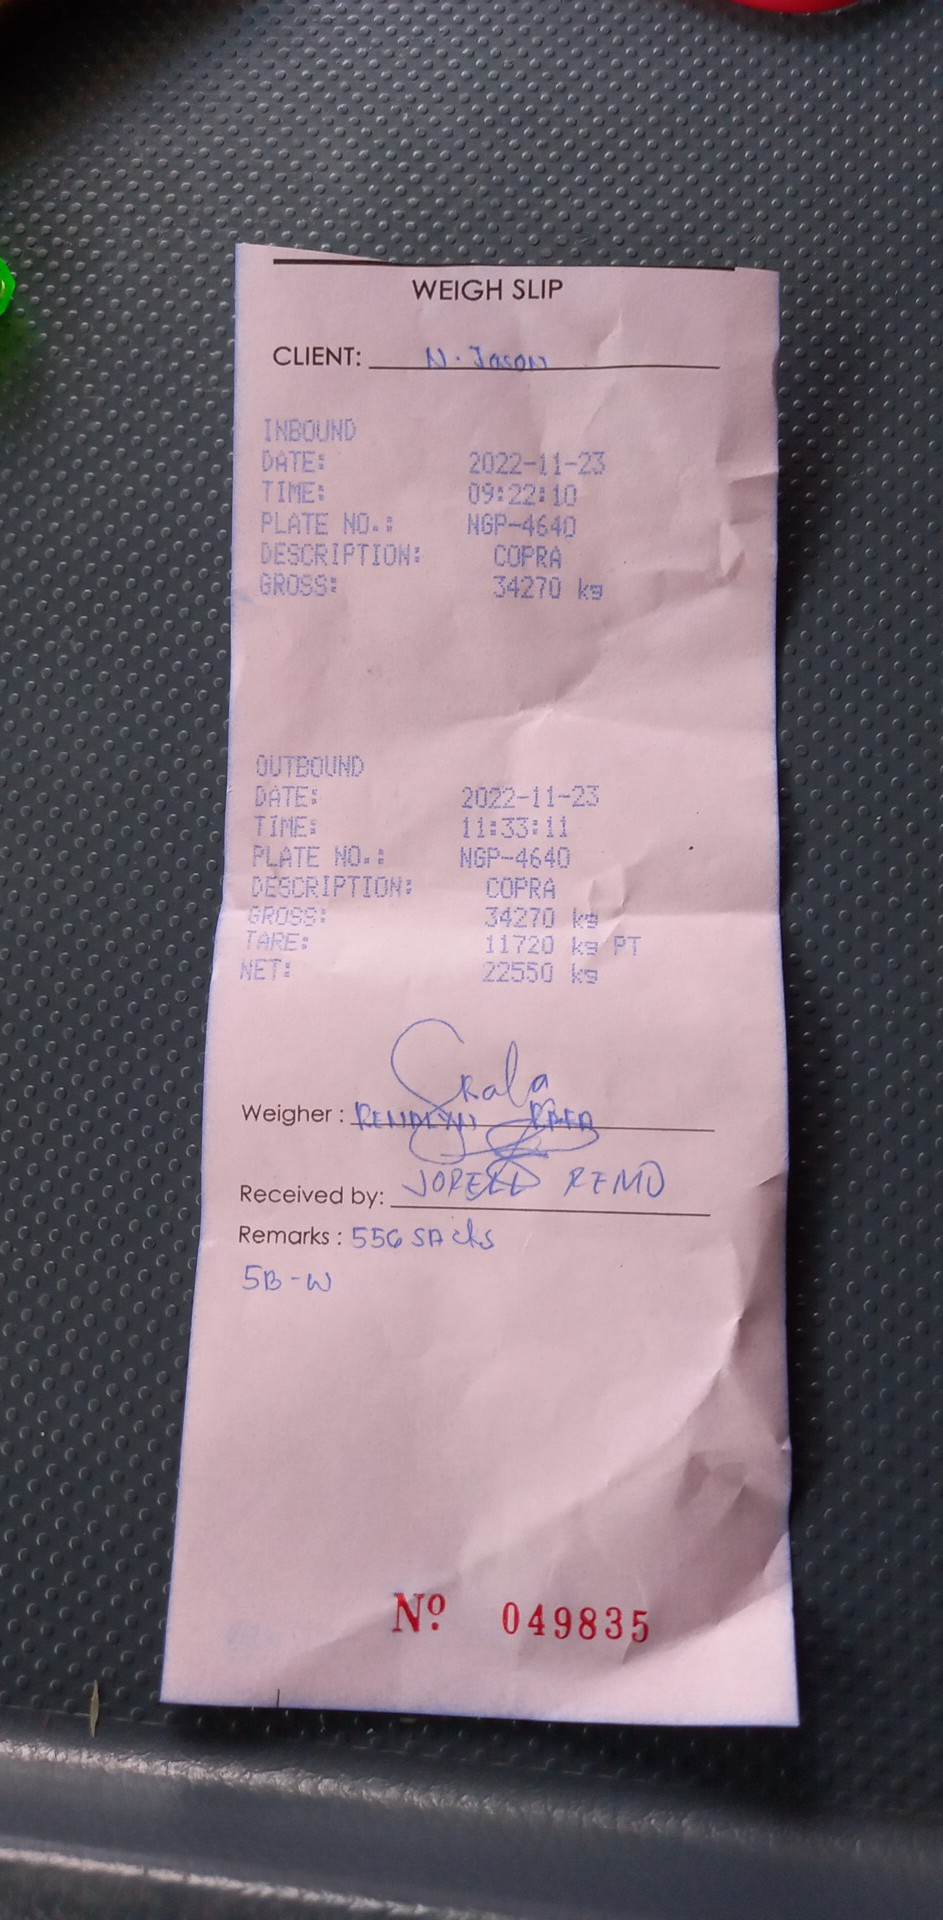 WEIGH SLIP
CLIENT: N. Jason
INBOUND
DATE: 2022-11-23
TIME: 09:22:10
PLATE NO.: NGP-4640
DESCRIPTION: COPRA
GROSS: 34270 kg
OUTBOUND
DATE: 2022-11-23
TIME: 11:33:11
PLATE NO.: NGP-4640
DESCRIPTION: COPRA
GROSS: 34270 kg
TARE: 11720 kg PT
NET: 22550 kg
Weigher :
Received by: REMO
Remarks : 556 SAcks
5B-W
Nº 049835